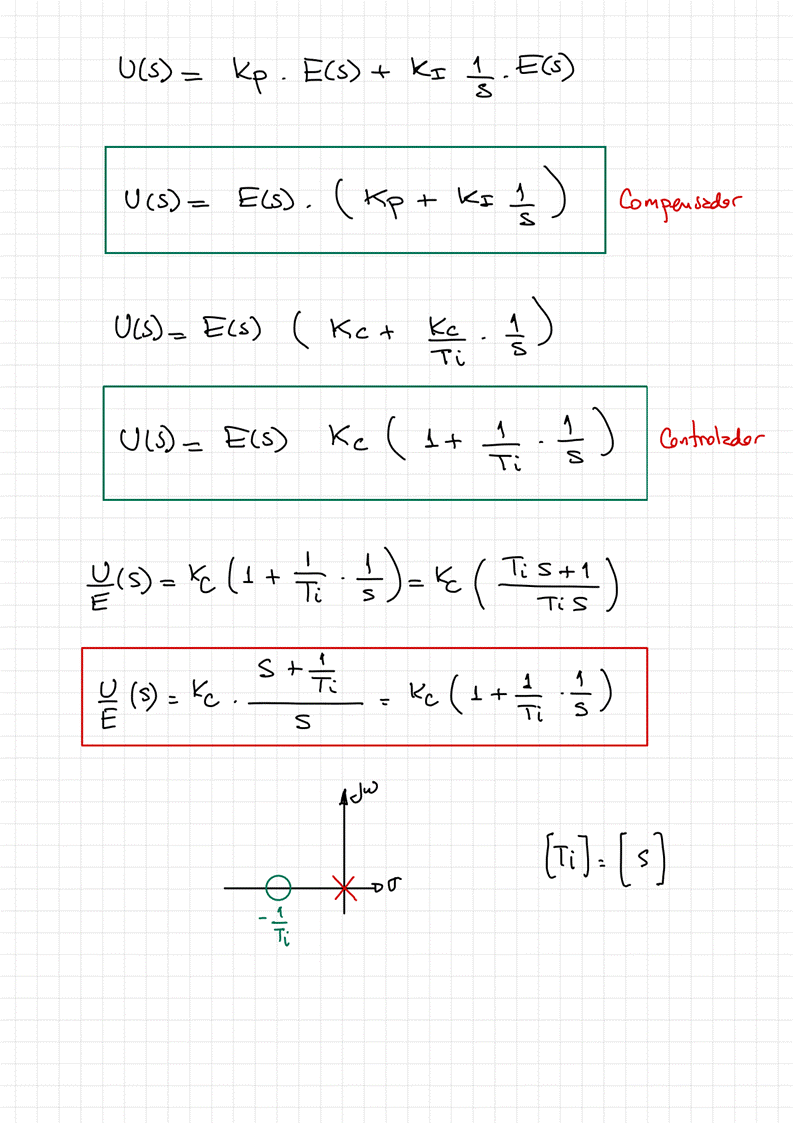 U(s) = Kp . E(s) + KI 1/s . E(s)
U(s) = E(s) . ( Kp + KI 1/s ) Compensador
U(s) = E(s) ( Kc + Kc/Ti . 1/s )
U(s) = E(s) Kc ( 1 + 1/Ti . 1/s ) Controlador
U/E (s) = Kc ( 1 + 1/Ti . 1/s ) = Kc ( Ti s + 1 / Ti s )
U/E (s) = Kc . s + 1/Ti / s = Kc ( 1 + 1/Ti . 1/s )
jω
[Ti] = [s]
σ
- 1/Ti